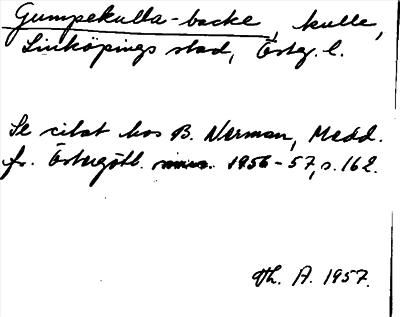 Gumpekulla-backe, kulle,
Linköpings stad, Östg. l.
Se citat hos B. Norman, Medd.
fr. Östergötl. mus. 1956-57, s. 162.
Th. A. 1957.